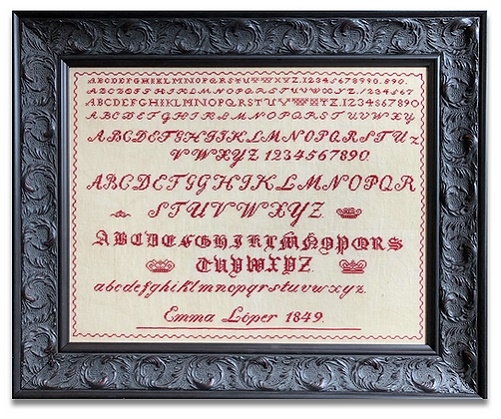 ABCDEFGHIKLMNOPQRSTUVWXYZ.1234567890.890.
ABCDEFGHIJKLMNOPQRSTUVWXYZ.1234567.
ABCDEFGHIJKLMNOPQRSTUVWXYZ.1234567890
ABCDEFGHIJKLMNOPQRSTUVWXY
ABCDEFGHIJKLMNOPQRSTUV
VWXYZ 1234567890
ABCDEFGGHIKLMNOPQR
STUVWXYZ
ABCDEFGHIKLMNOPQRS
TUVWXYZ
abcdefghijklmnopqrstuvwxyz.
Emma Löper 1849.